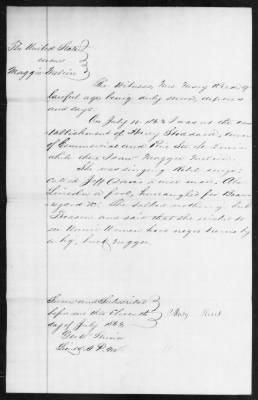 The United States
versus
Maggie
The Witness Mrs. Mary Reed of
lawful age being duly sworn, deposes
and says.
On July 10 1863 I was at the
establishment of Henry Stoddard, corner
of Commercial and Pine Sts. St. Louis
while there I saw Maggie
She was singing Rebel songs,
called Jeff Davis a nice man. Abe
Lincoln a fool, hurrahed for Beau
regard &c. She talked nothing but
Treason and said that she wished to
see Union Women have negro
by a big, buck nigger.
Sworn and Subscribed
before me this Eleventh
day of July 1863
Mary Reed
Lieut &